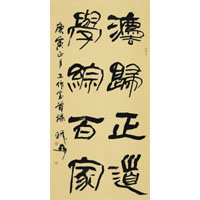 灋歸正道
學綜百家
庚寅正月